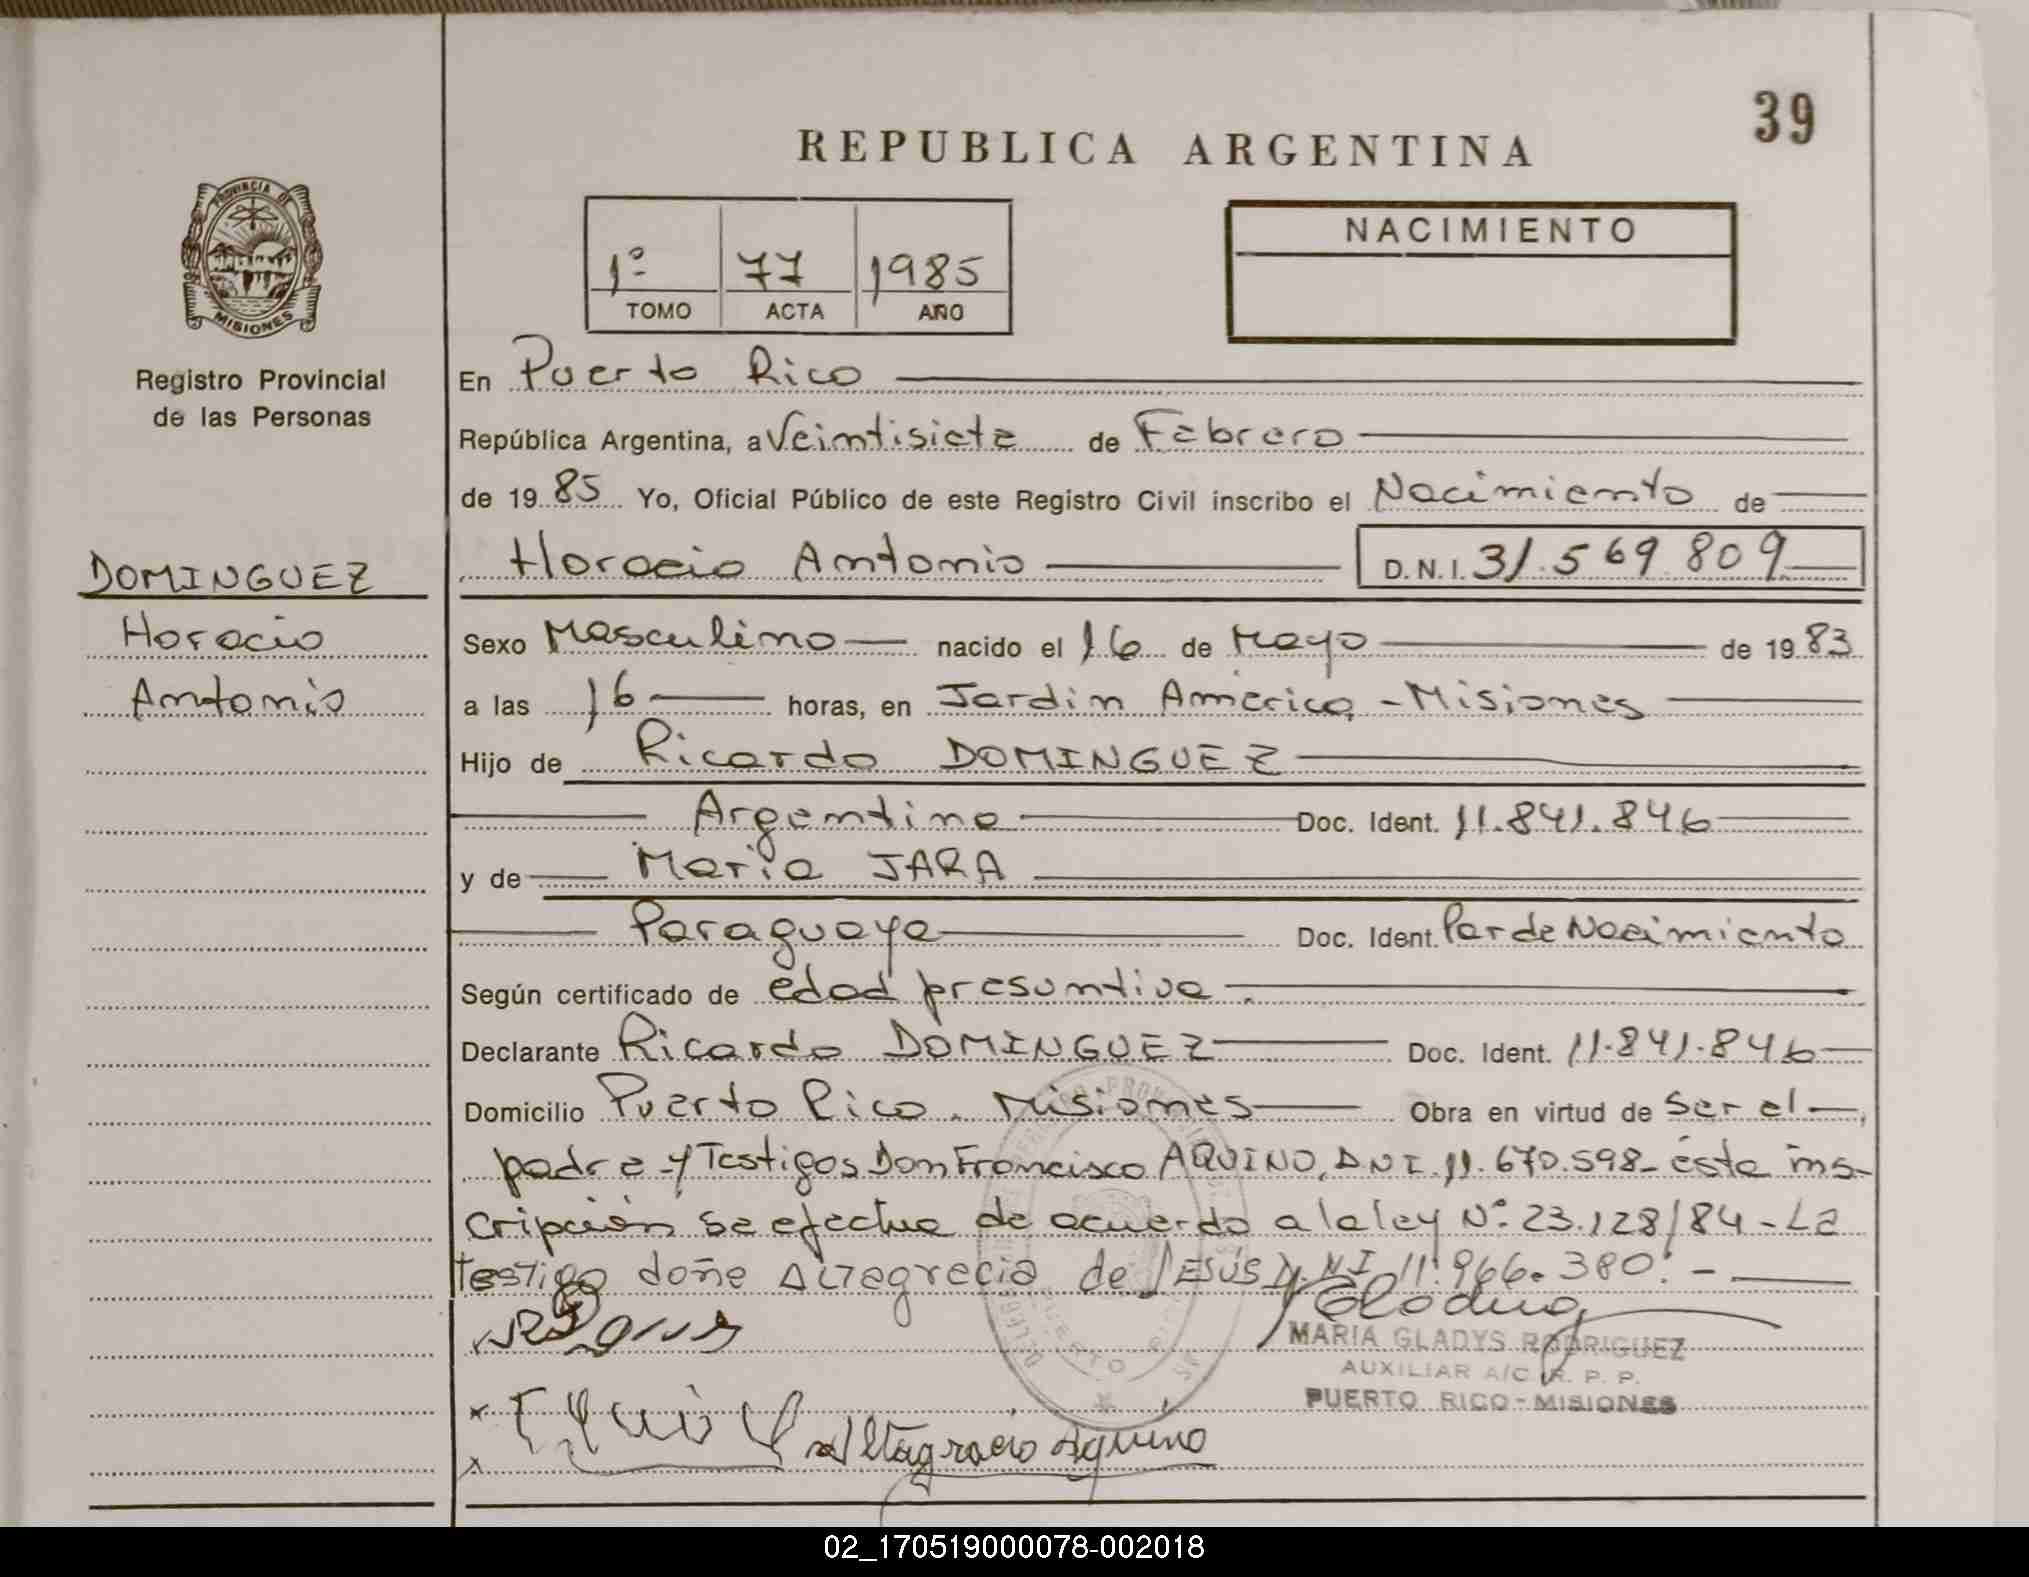 39
REPUBLICA ARGENTINA
PROVINCIA DE
MISIONES
Registro Provincial
de las Personas
1º 77 1985
TOMO ACTA AÑO
NACIMIENTO
DOMINGUEZ
Horacio
Antonio
En Puerto Rico
República Argentina, a Veintisiete de Febrero
de 1985 Yo, Oficial Público de este Registro Civil inscribo el Nacimiento de
Horacio Antonio D.N.I. 31.569.809
Sexo Masculino nacido el 16 de Mayo de 1983
a las 16 horas, en Jardin America - Misiones
Hijo de Ricardo DOMINGUEZ
Argentino Doc. Ident. 11.841.846
y de Maria JARA
Paraguaya Doc. Ident. Par de Nacimiento
Según certificado de edad presuntiva.
Declarante Ricardo DOMINGUEZ Doc. Ident. 11.841.846
Domicilio Puerto Rico. Misiones Obra en virtud de ser el
padre y Testigos Don Francisco AQUINO, DNI. 11.670.598- ésta ins-
cripción se efectua de acuerdo a la ley Nº 23.128/84 - La
Testigo doñe Altagrecia de JESÚS D.NI 11.966.380. -
MARIA GLADYS RODRIGUEZ
AUXILIAR A/C R. P. P.
PUERTO RICO - MISIONES
Altagracia Aquino
02_170519000078-002018